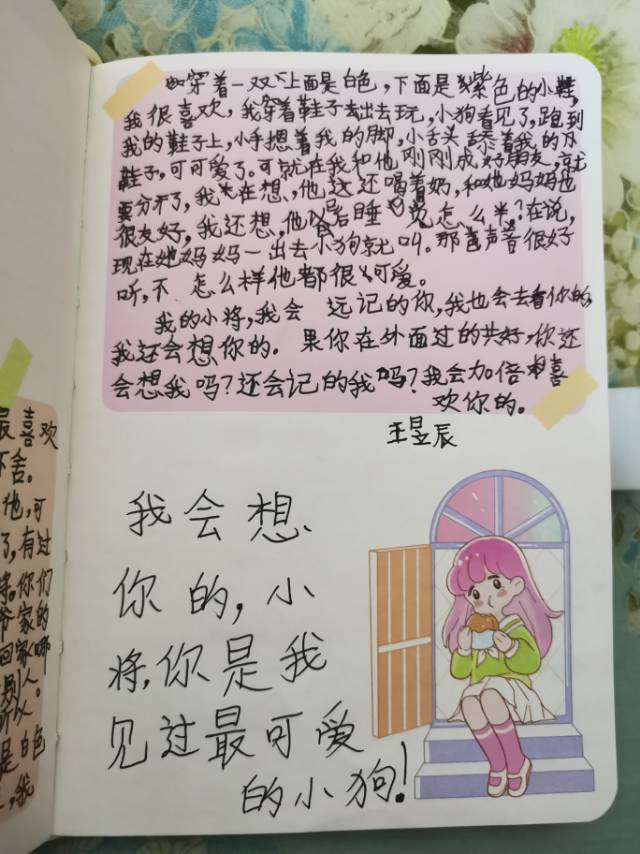 最喜欢
不舍。
他,可
了,有过
将。你们
爷家的
回家哪
别人
所以。
是白色
,我
穿着一双上面是白色,下面是紫色的小鞋,
我很喜欢,我穿着鞋子去出去玩,小狗看见了,跑到
我的鞋子上,小手摁着我的脚,小舌头舔着我的
鞋子,可可爱了。可就在我和他刚刚成好朋友,就
要分开了,我在想,他还喝着奶,和她妈妈也
很友好,我还想,他以后睡觉怎么半?在说,
现在她妈妈一出去小狗就叫。那声音很好
听,不怎么样他都很可爱。
我的小将,我会远记的你,我也会去看你的,
我还会想你的.果你在外面过的共好,你还
会想我吗?还会记的我吗?我会加倍喜
欢你的。
王昱辰
我会想
你的,小
将,你是我
见过最可爱
的小狗!